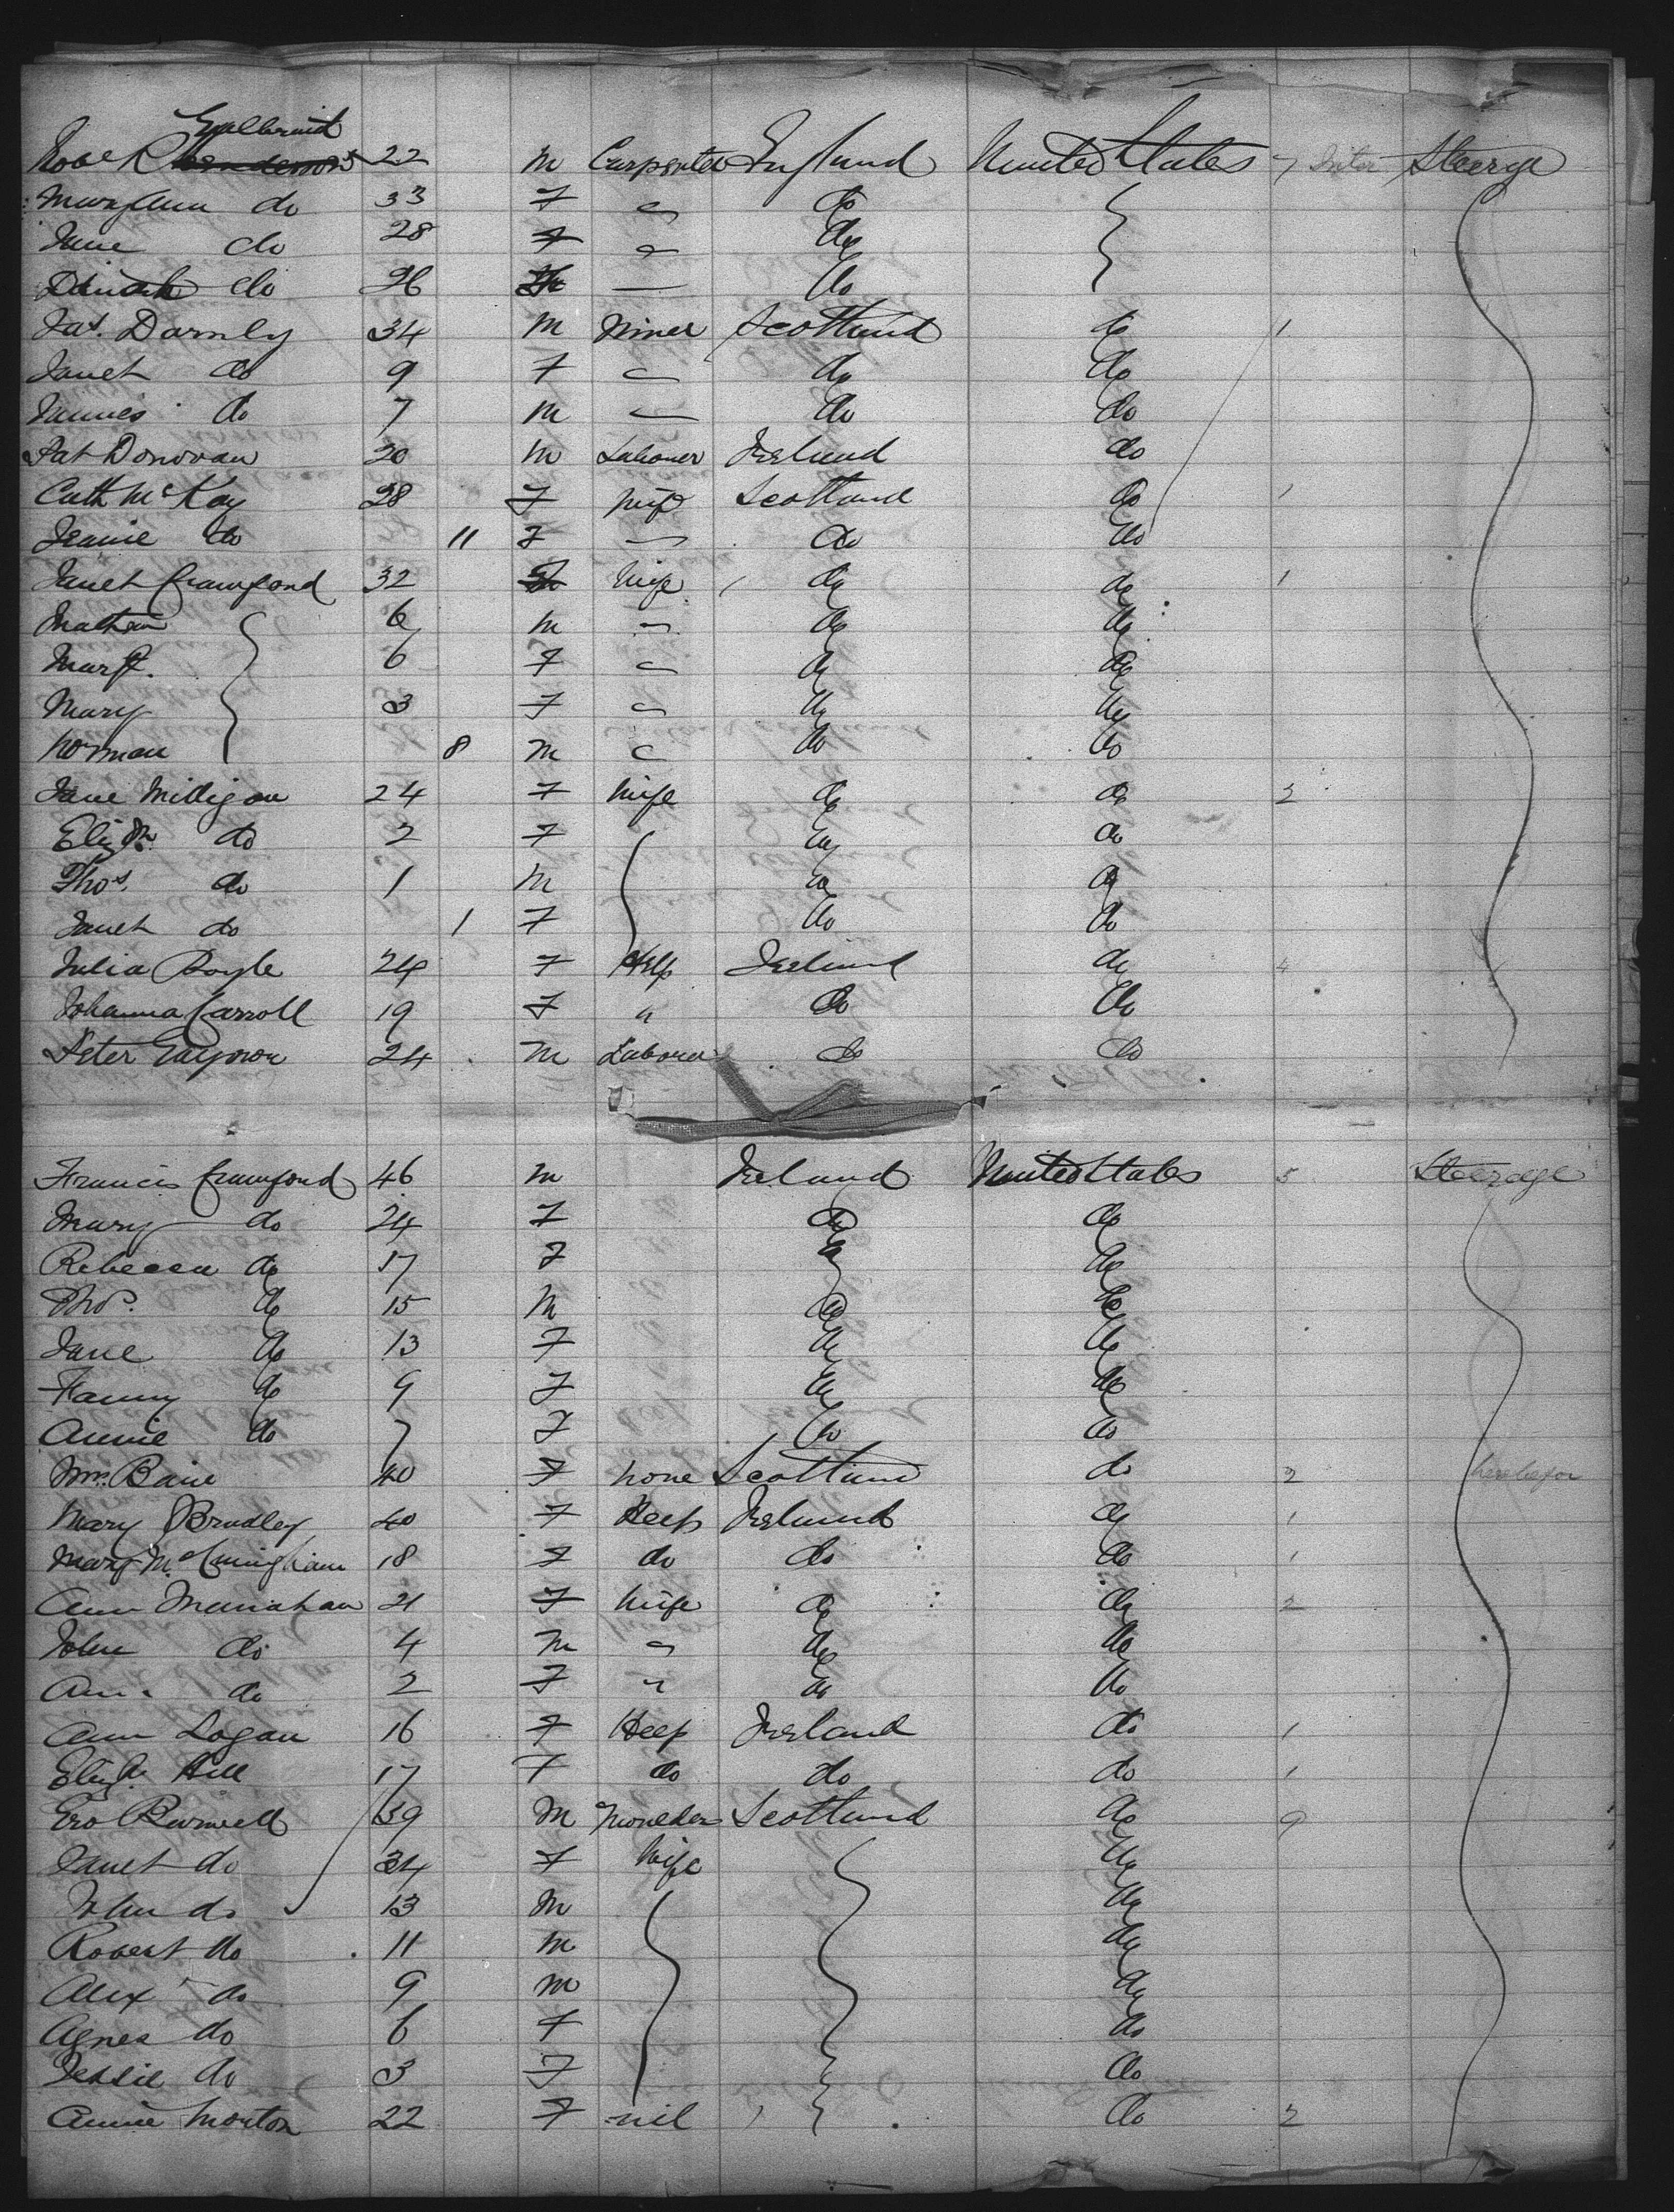 Galbraid
Robt 22 m Carpenter England United States 7 Inter Steerage
Mary Ann do 33 F " do
Jane do 28 F " do
Dinah do 26 F — do
Jas. Darnly 34 m Miner Scotland do 1
Janet do 9 F " do do
James do 7 m — do do
Pat Donovan 20 m Labourer Ireland do
Cath McKay 28 F wife Scotland do 1
Jeanie do 11 F — do do
Janet Crawford 32 F Wife do do 1
Mathew 6 m " do do
Margt. 6 F " do do
Mary 3 F " do do
Norman 8 m " do do
Jane Milligan 24 F Wife do do 2
Elizth. do 2 F do do
Thos. do 1 m do do
Janet do 1 F do do
Julia Boyle 24 F Help Ireland do 4
Johanna Carroll 19 F " do do
Peter 24 m Labourer do do
Francis Crawford 46 m Ireland United States 5 Steerage
Mary do 24 F do do
Rebecca do 17 F do do
Thos. do 15 m do do
Jane do 13 F do do
Fanny do 9 F do do
Annie do 7 F do do
Mrs. Bain 40 F none Scotland do 2
Mary Bradley 40 F Keep Ireland do 1
Mary McCuningham 18 F do do do 1
Ann Manahan 21 F Wife do do 2
John do 4 m " do do
Ann do 2 F " do do
Ann Logan 16 F Keep Ireland do 1
Elizth. Hill 17 F do do do 1
Geo Burwell 39 m Moulder Scotland do 9
Janet do 34 F Wife do
John do 13 m do
Robert do 11 m do
Alex do 9 m do
Agnes do 6 F do
Jessie do 3 F do
Annie Morton 22 F nil do 2